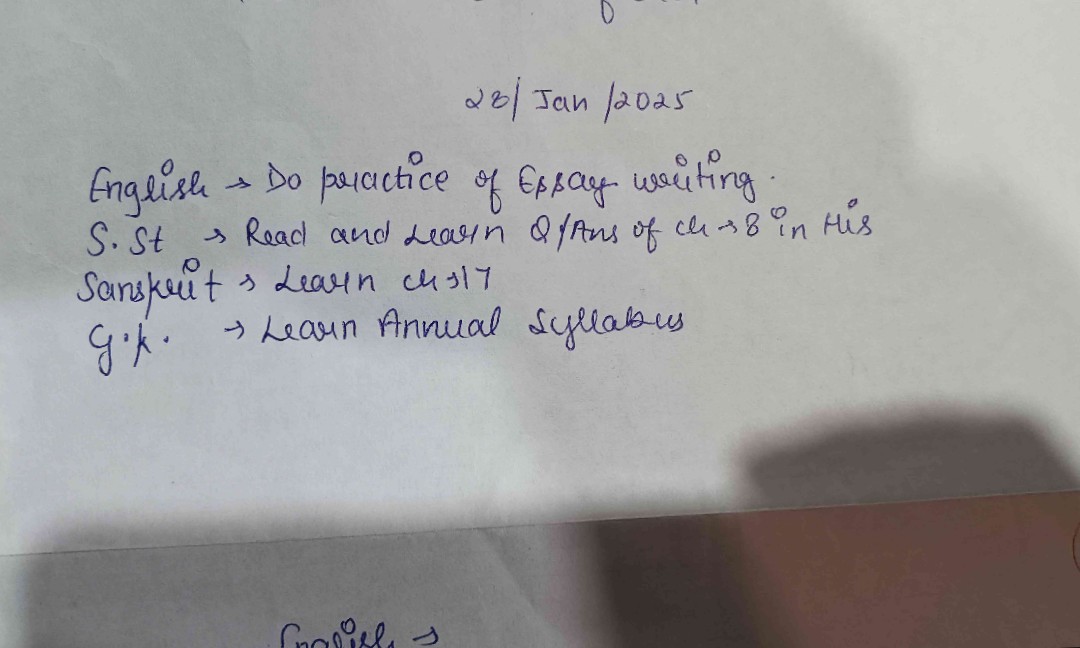 28/ Jan /2025
English → Do practice of Essay writing.
S.St → Read and Learn Q/Ans of ch → 8 in His
Sanskrit → Learn ch → 17
G.K. → Learn Annual Syllabus
English →